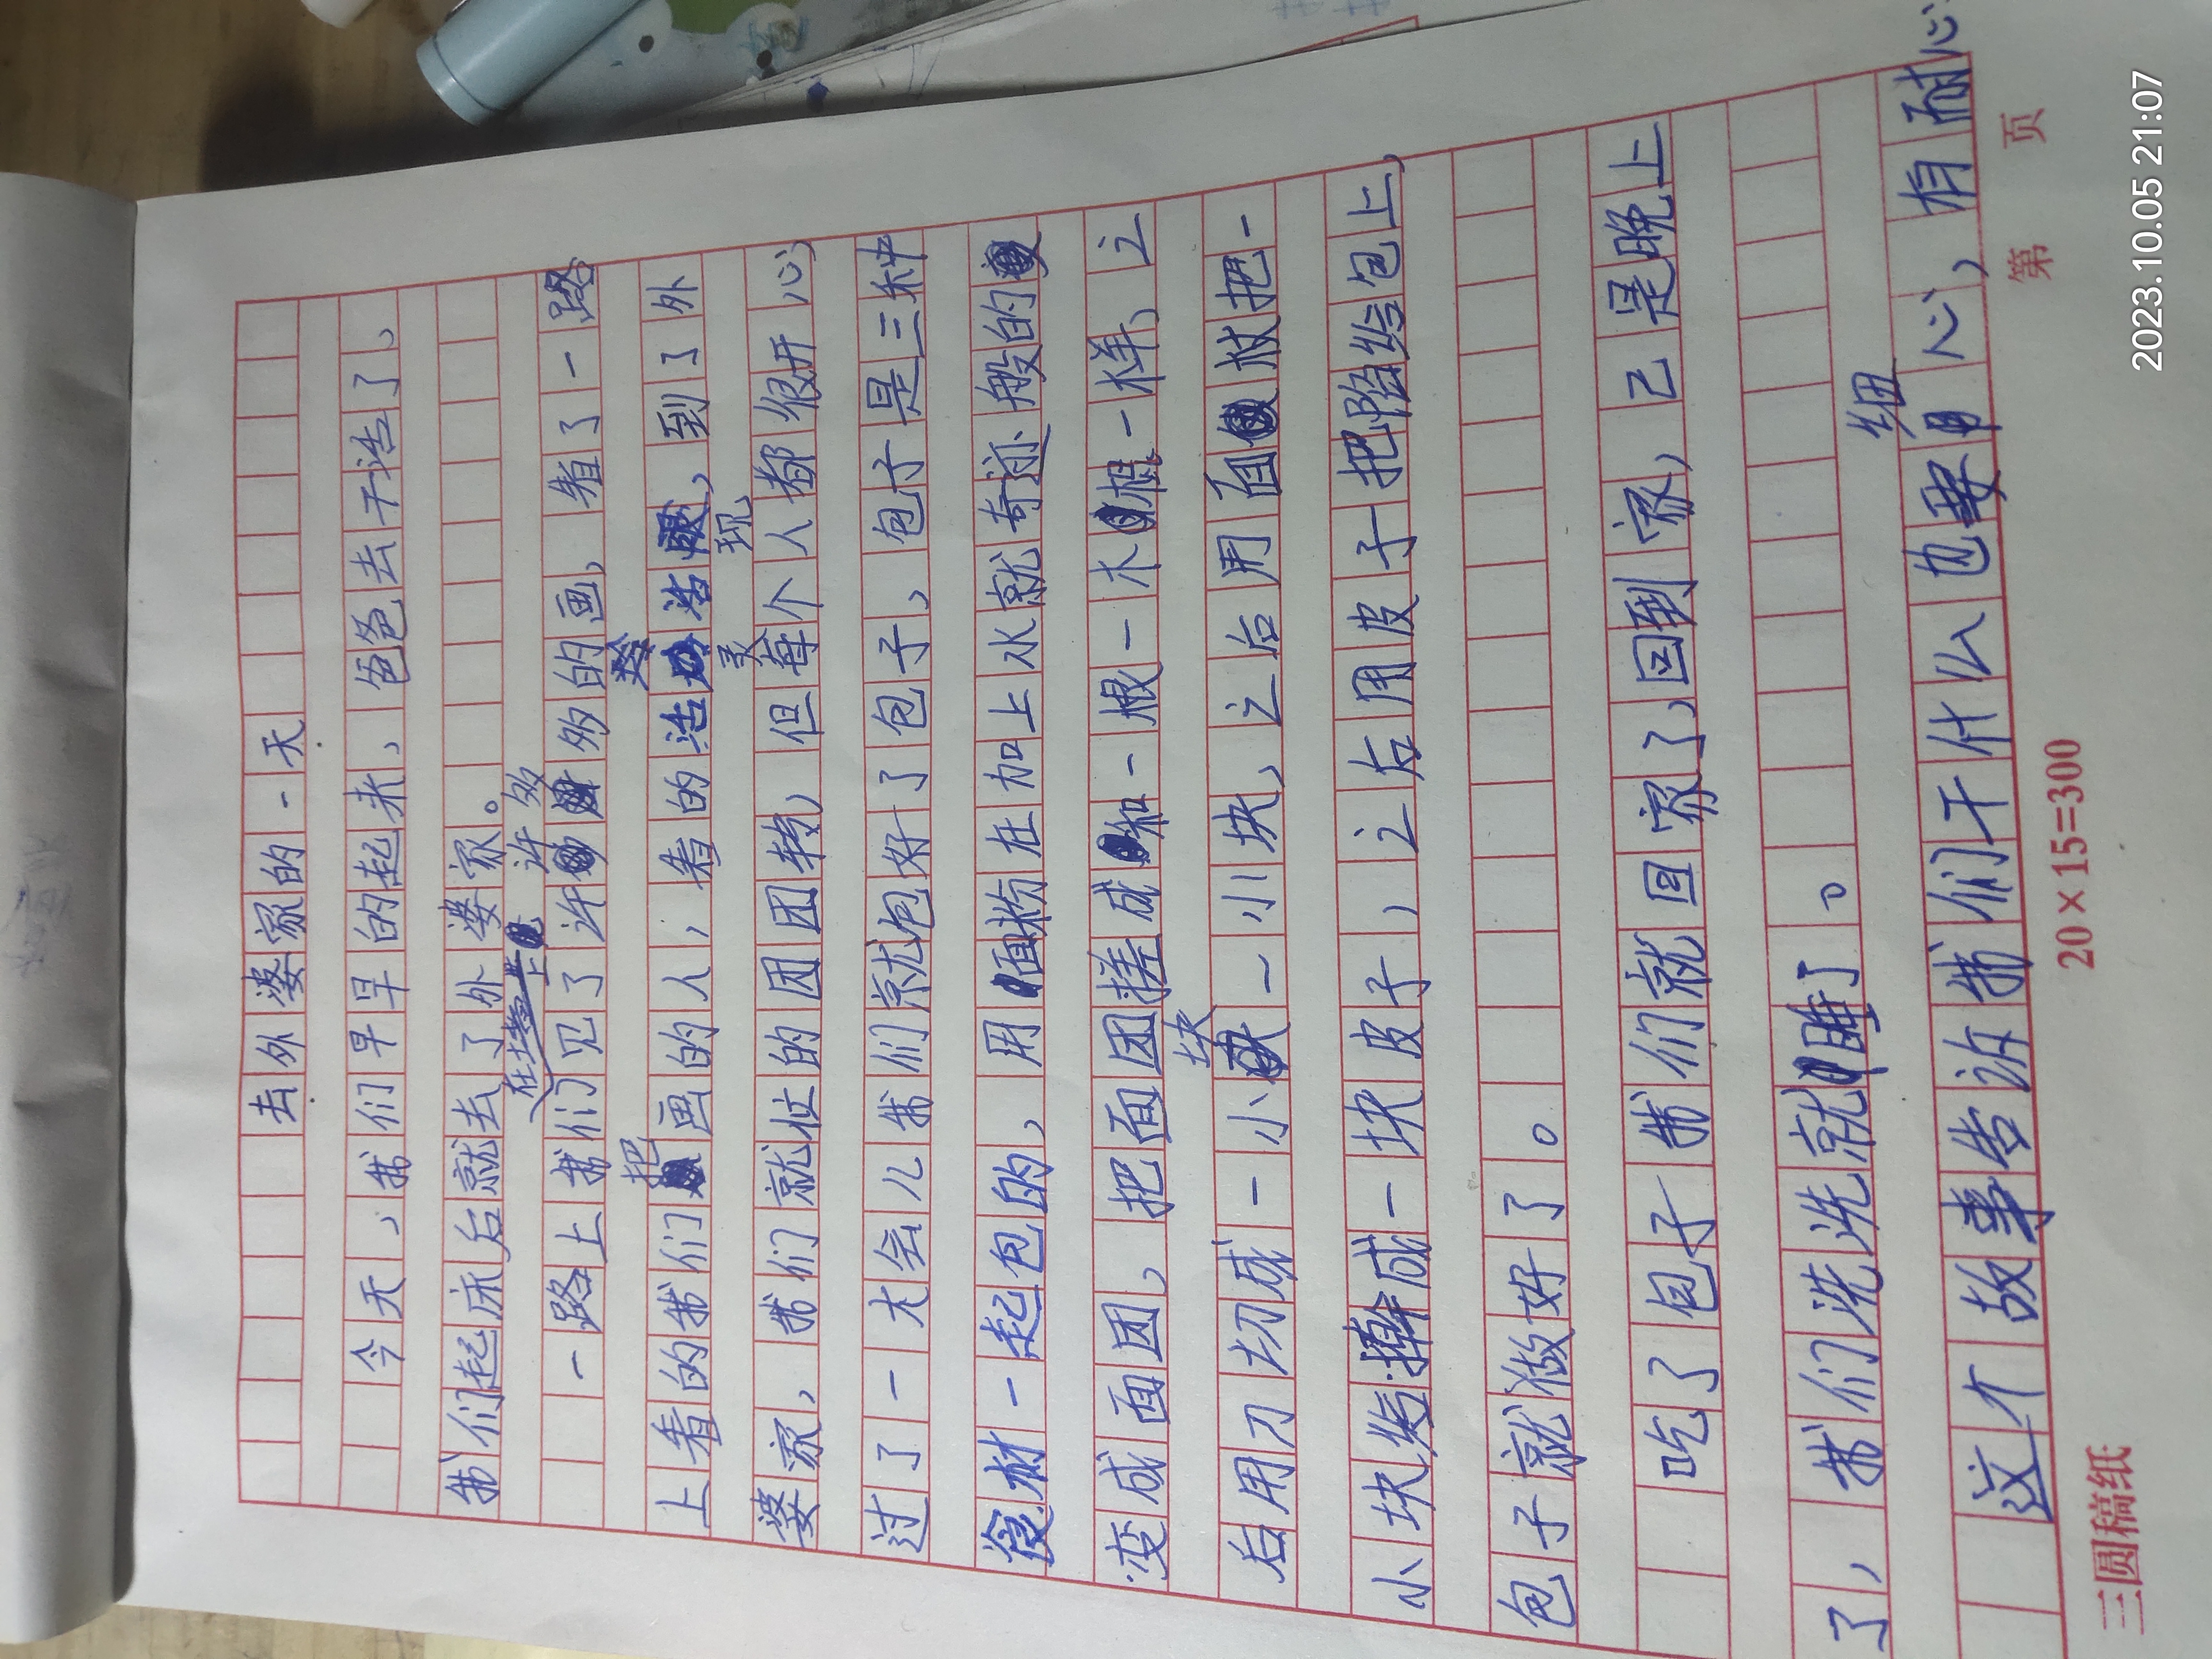 去外婆家的一天
今天,我们早早的起来,爸爸去干活了、
我们起床后就去了外婆家。
在墙上 许多
一路上我们见了许多的画,看了一路
把
上看的我们画的人,看的活灵活现,到了外
婆家,我们就忙的团团转,但每个人都很开心,
过了一大会儿我们就包好了包子,包子是三种
食材一起包的,用面粉在加上水就奇迹般的
变成面团,把面团搓成和一根一木棍一样,之
块
后用刀切成一小一小块,之后用自杖把一
小块给擀成一块皮子,之后用皮子把陷给包上,
包子就做好了。
吃了包子我们就回家了,回到家,己是晚上
了,我们洗洗就睡了。
细
这个故事告诉我们干什么也要心,有耐心
三圆稿纸
20×15=300
第 页
2023.10.05 21:07